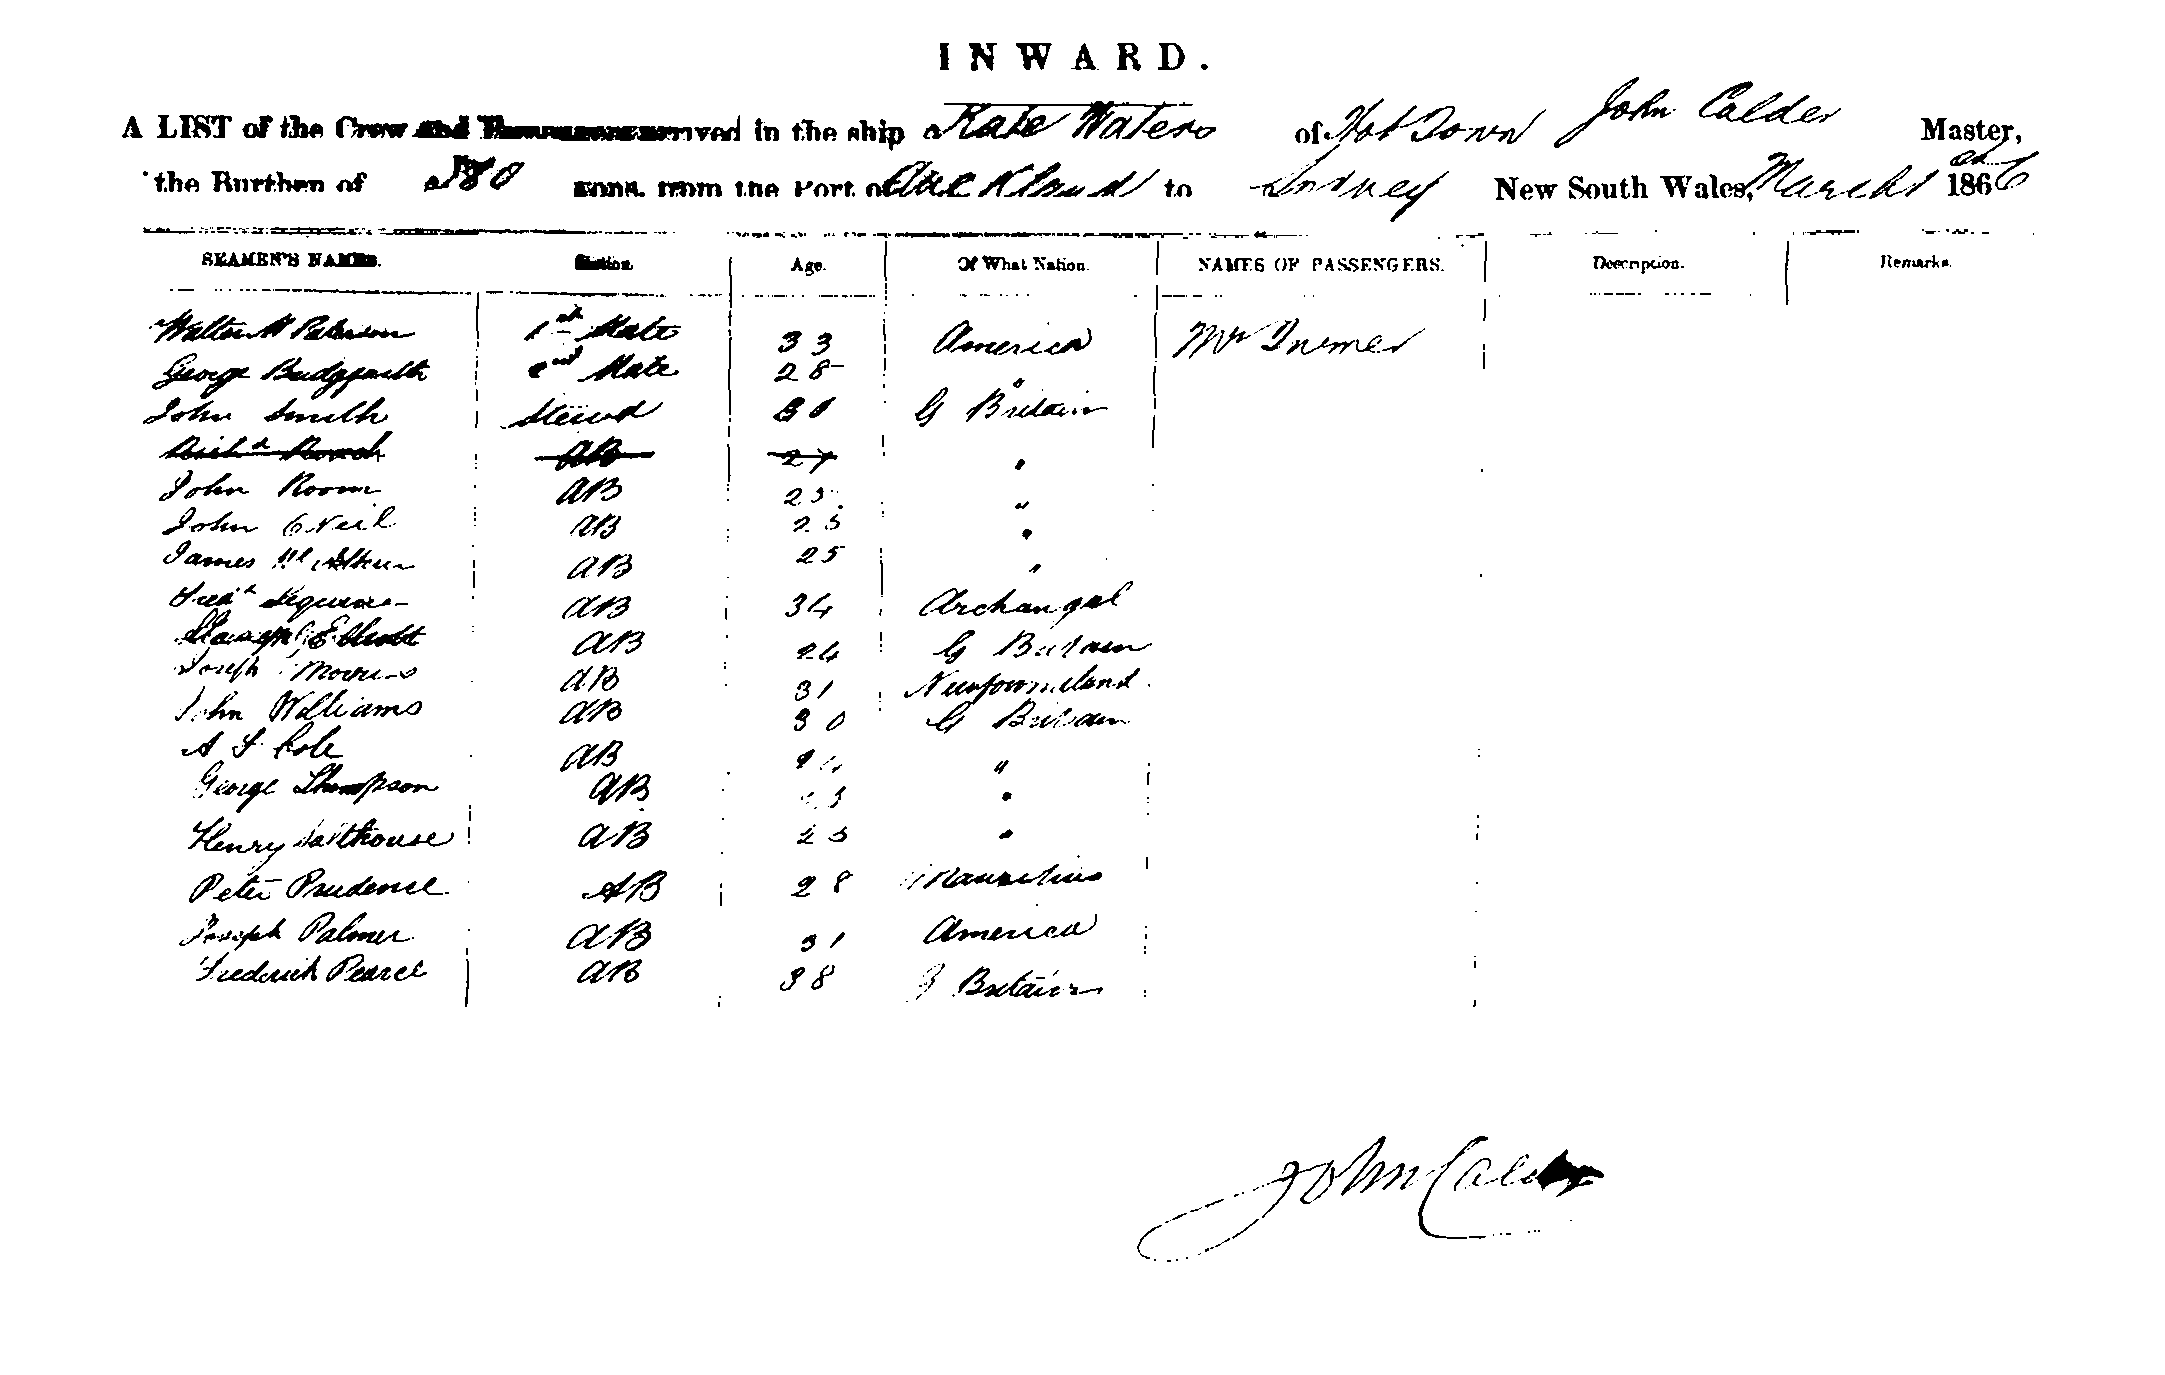 INWARD.
A LIST of the Crew and arrived in the ship Kate Waters of Hob Town John Calder Master,
the Burthen of 580 tons, from the Port of Auckland to Sydney New South Wales, March 1st 1866
SEAMEN'S NAMES. Station. Age. Of What Nation. NAMES OF PASSENGERS. Description. Remarks.
Walter W Paterson 1st Mate 33 America Mr Turner
George 2nd Mate 28 "
John Smith Steward 30 G Britain
Richd Roach AB 27 "
John Room AB 25 "
John O Neil AB 25 "
James AB 25 "
Fredk AB 34 Archangel
Elliott AB 24 G Britain
Joseph Morris AB 31 Newfoundland
John Williams AB 30 G Britain
A F Cole AB "
George Thompson AB "
Henry AB 23 "
Peter Prudence AB 28 Mauritius
Joseph Palmer AB 31 America
Frederick Pearce AB 38 G Britain
John Calder